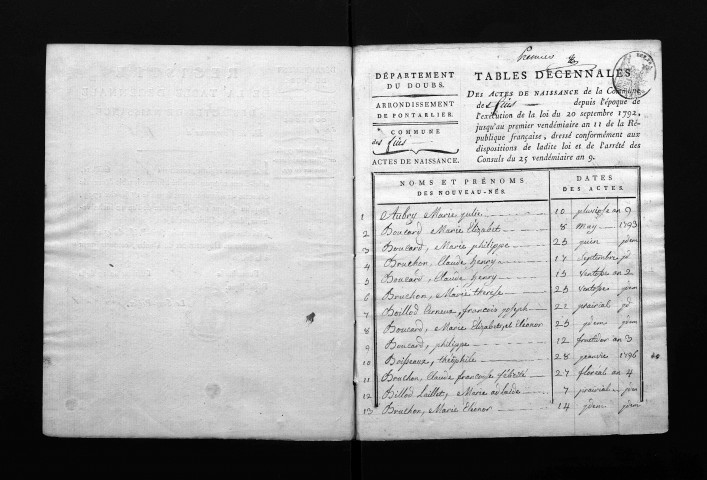 DÉPARTEMENT
DU DOUBS.
ARRONDISSEMENT
DE PONTARLIER.
COMMUNE
des fins
ACTES DE NAISSANCE.
TABLES DÉCENNALES
DES ACTES DE NAISSANCE de la Commune
des fins depuis l'époque de
l'exécution de la loi du 20 septembre 1792,
jusqu'au premier vendémiaire an 11 de la Ré-
publique française, dressé conformément aux
dispositions de ladite loi et de l'arrêté des
Consuls du 25 vendémiaire an 9.
NOMS ET PRÉNOMS
DES NOUVEAU-NÉS.
DATES
DES ACTES.
1 Aubry Marie julie 10 pluviose an 9
2 Boucard Marie Elizabet 8 may 1793
3 Boucard, Marie philippe 25 juin idem
4 Bruchon, Claude henry 17 Septembre id
5 Boucard, Claude henry 15 Ventose an 2
6 Bruchon, Marie therese 25 Ventose idem
7 Boillod Verneux, francois joseph 22 prairial id
8 Boucard, Marie Elizabet, et Eléonor 25 idem idem
9 Boucard, philippe 12 fructidor an 3
10 Boisseaux, théophile 28 janvier 1796
11 Bruchon, Claude françoise félicité 27 floréal an 4
12 Billod Laillet, Marie adelaide 7 prairial idem
13 Bruchon, Marie Eléonor 14 idem idem